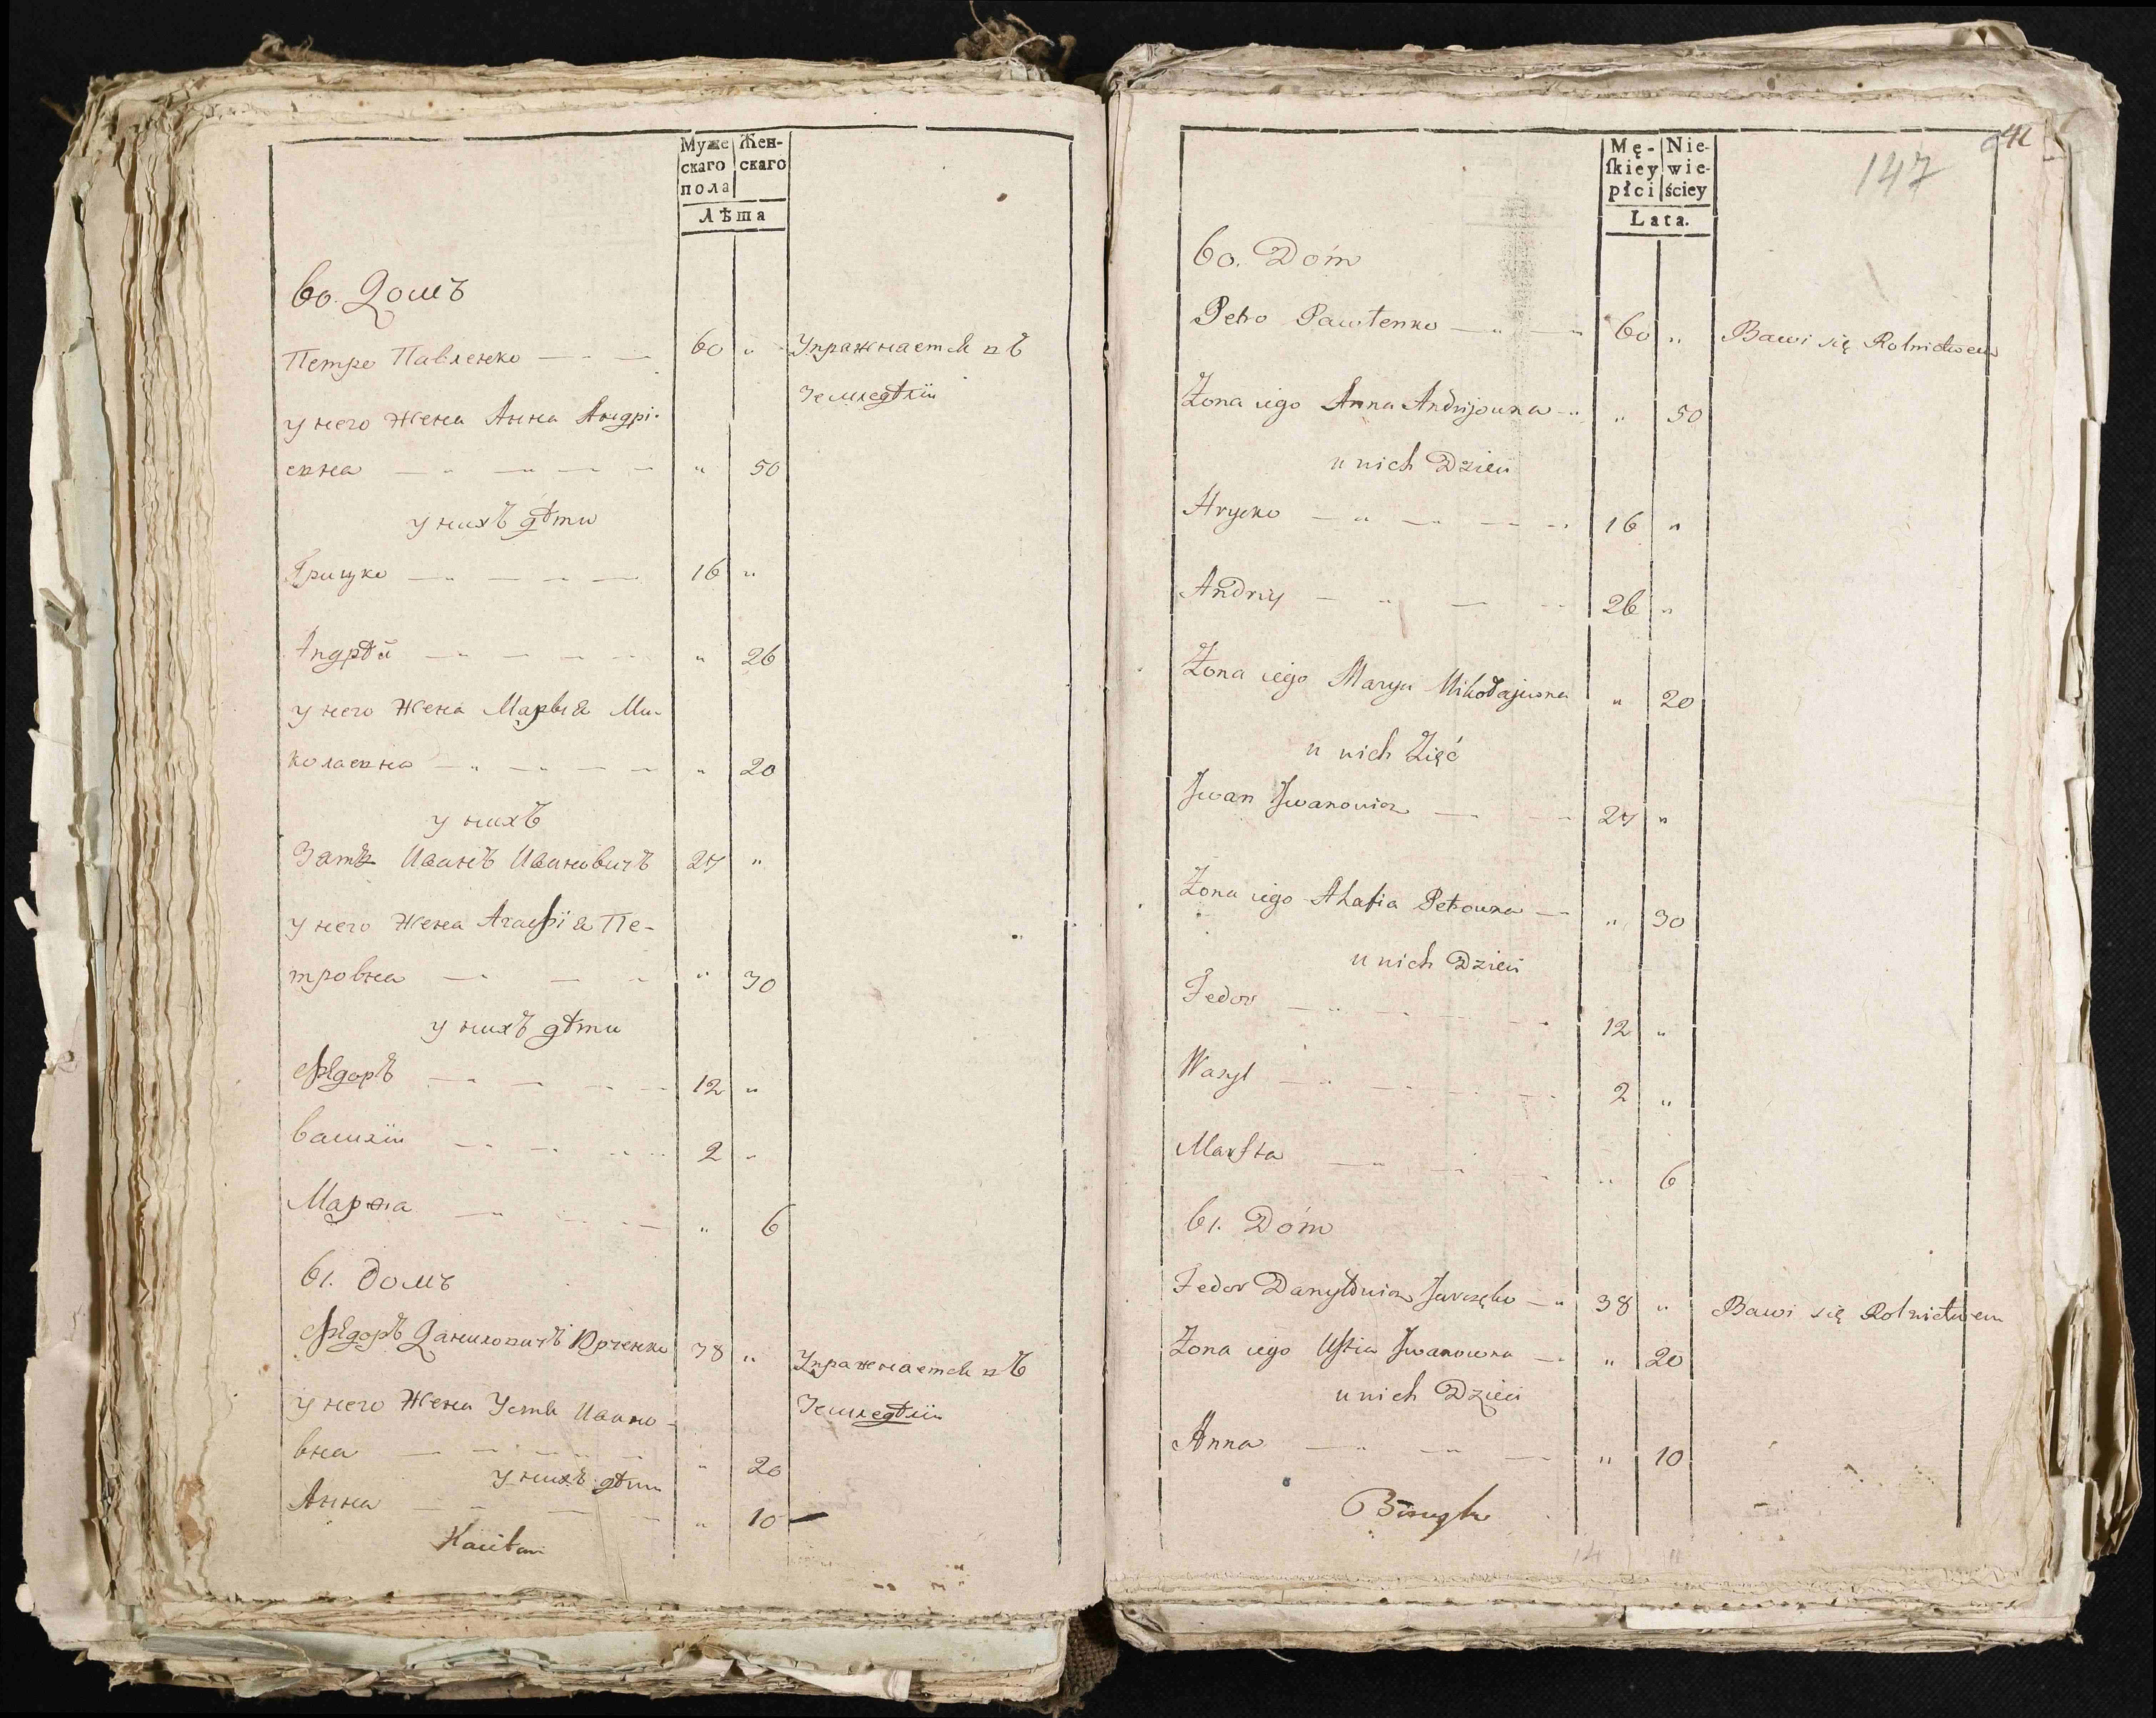 Муже Жен-
скаго скаго
пола
Лѣта
60. Домъ
Петро Павленко — — 60 „ Упражнается въ
Земледѣліи
у него Жена Анна Андрі-
евна — „ — — — „ 50
у нихъ дѣти
Грицко — „ — — — 16 „
Андрѣй — „ — — — „ 26
у него Жена Марыя Ми-
колаевна — „ — „ — — „ 20
у нихъ
Зять Иванъ Ивановичъ 27 „
у него Жена Агафія Пе-
тровна — — — „ 30
у нихъ дѣти
Ѳедоръ — — — — 12 „
Василій — — — 2 „
Марѳа — — — „ 6
61. Домъ
Ѳедоръ Даниловичъ Юрченко 38 „ Упражнается въ
Земледѣліи
у него Жена Устя Ивано-
вна — — — — „ 20
у нихъ дѣти
Анна — „ — — „ 10 —
Mę- Nie-
ſkiey wie-
płci ściey
Lata.
147
60. Dóm
Petro Pawłenko — „ — 60 „ Bawi się Rolnictwem
Żona iego Anna Andrijowna „ „ 50
u nich Dzieci
Hrycko — „ — — 16 „
Andriy — „ — 26 „
Żona iego Marya Mikołajewna „ 20
u nich Zięć
Jwan Jwanowicz — — 27 „
Żona iego Ahafia Petrowna — „ 30
u nich Dzieci
Fedor — „ — — 12 „
Wasyl — „ — — 2 „
Marfta — „ — — „ 6
61. Dóm
Fedor Danyłowicz Jurczęko — „ 38 „ Bawi się Rolnictwem
Żona iego Ustia Jwanowna — „ 20
u nich Dzieci
Anna — „ — „ — „ 10
14 11